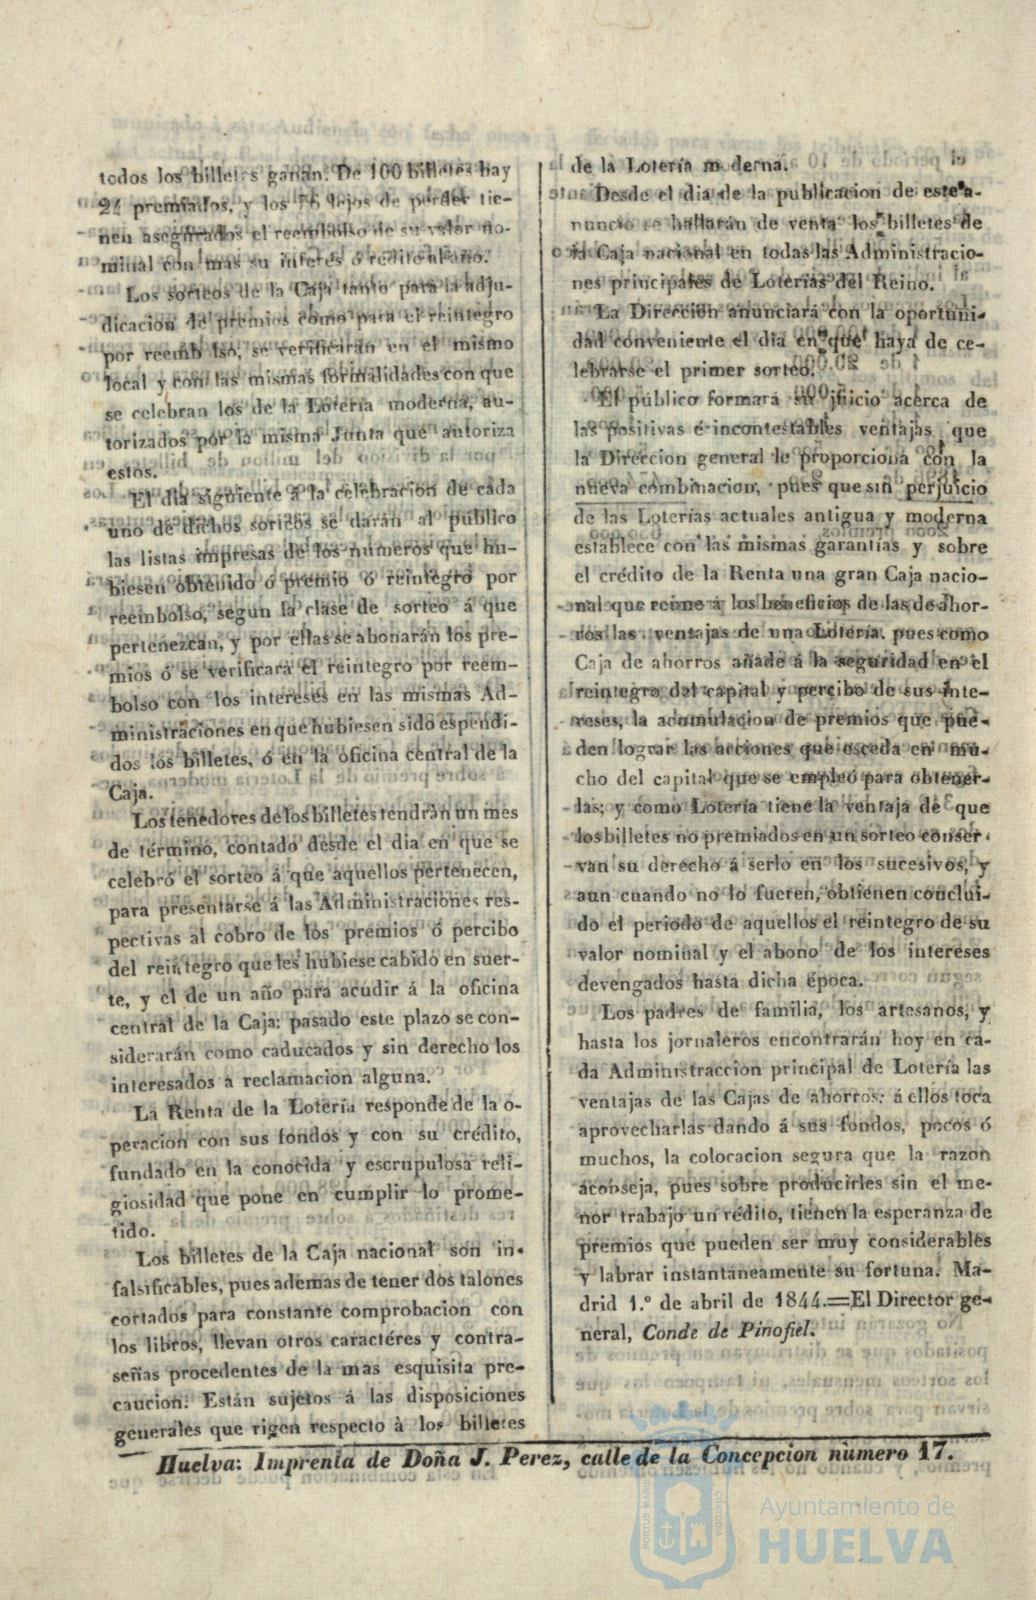 todos los billetes ganan. De 100 billetes hay
24 premiados, y los 76 lejos de perder tie-
nen asegurados el reembolso de su valor no-
minal con mas su interés ó rédito al año.
Los sorteos de la Caja tanto para la adju-
dicacion de premios como para el reintegro
por reemb lso, se verificarán en el mismo
local y con las mismas formalidades con que
se celebran los de la Lotería moderna, au-
torizados por la misma Junta que autoriza
estos.
El dia siguiente á la celebracion de cada
uno de dichos sorteos se darán al público
las listas impresas de los números que hu-
biesen obtenido ó premio ó reintegro por
reembolso, segun la clase de sorteo á que
pertenezcan, y por ellas se abonarán los pre-
mios ó se verificará el reintegro por reem-
bolso con los intereses en las mismas Ad-
ministraciones en que hubiesen sido espendi-
dos los billetes, ó en la oficina central de la
Caja.
Los tenedores de los billetes tendrán un mes
de término, contado desde el dia en que se
celebró el sorteo á que aquellos pertenecen,
para presentarse á las Administraciones res-
pectivas al cobro de los premios ó percibo
del reintegro que les hubiese cabido en suer-
te, y el de un año para acudir á la oficina
central de la Caja: pasado este plazo se con-
siderarán como caducados y sin derecho los
interesados a reclamacion alguna.
La Renta de la Lotería responde de la o-
peracion con sus fondos y con su crédito,
fundado en la conocida y escrupulosa reli-
giosidad que pone en cumplir lo prome-
tido.
Los billetes de la Caja nacional son in-
falsificables, pues ademas de tener dos talones
cortados para constante comprobacion con
los libros, llevan otros caractéres y contra-
señas procedentes de la mas esquisita pre-
caucion. Están sujetos á las disposiciones
generales que rigen respecto à los billetes
de la Lotería m derna.
Desde el dia de la publicacion de este a-
nuncio se hallarán de venta los billetes de
la Caja nacional en todas las Administracio-
nes principales de Loterías del Reino.
La Direccion anunciará con la oportuni-
dad conveniente el dia en que haya de ce-
lebrarse el primer sorteo.
El público formará su juicio acerca de
las positivas é incontestables ventajas que
la Direccion general le proporciona con la
nueva combinacion, pues que sin perjuicio
de las Loterías actuales antigua y moderna
establece con las mismas garantías y sobre
el crédito de la Renta una gran Caja nacio-
nal que reune á los beneficios de las de ahor-
ros las ventajas de una Lotería, pues como
Caja de ahorros añade á la seguridad en el
reintegro del capital y percibo de sus inte-
reses, la acumulacion de premios que pue-
den lograr las acciones que esceda en mu-
cho del capital que se empleó para obtener-
las; y como Lotería tiene la ventaja de que
los billetes no premiados en un sorteo conser-
van su derecho á serlo en los sucesivos, y
aun cuando no lo fueren, obtienen conclui-
do el periodo de aquellos el reintegro de su
valor nominal y el abono de los intereses
devengados hasta dicha época.
Los padres de familia, los artesanos, y
hasta los jornaleros encontrarán hoy en ca-
da Administraccion principal de Lotería las
ventajas de las Cajas de ahorros: á ellos toca
aprovecharlas dando á sus fondos, pocos ó
muchos, la colocacion segura que la razon
aconseja, pues sobre producirles sin el me-
nor trabajo un rédito, tienen la esperanza de
premios que pueden ser muy considerables
y labrar instantáneamente su fortuna. Ma-
drid 1.º de abril de 1844.=El Director ge-
neral, Conde de Pinofiel.
Huelva: Imprenta de Doña J. Perez, calle de la Concepcion número 17.
PORTUS MARIS CUSTODIA
Ayuntamiento de
HUELVA